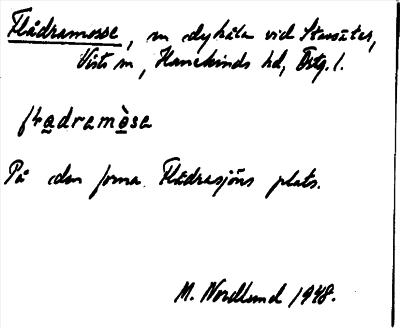 Flädramosse, en dyhåla vid Stensäter,
Vists sn, Hanekinds hd, Östg. l.
fladramòsa
På den forna Flädrasjöns plats.
M. Nordlund 1948.